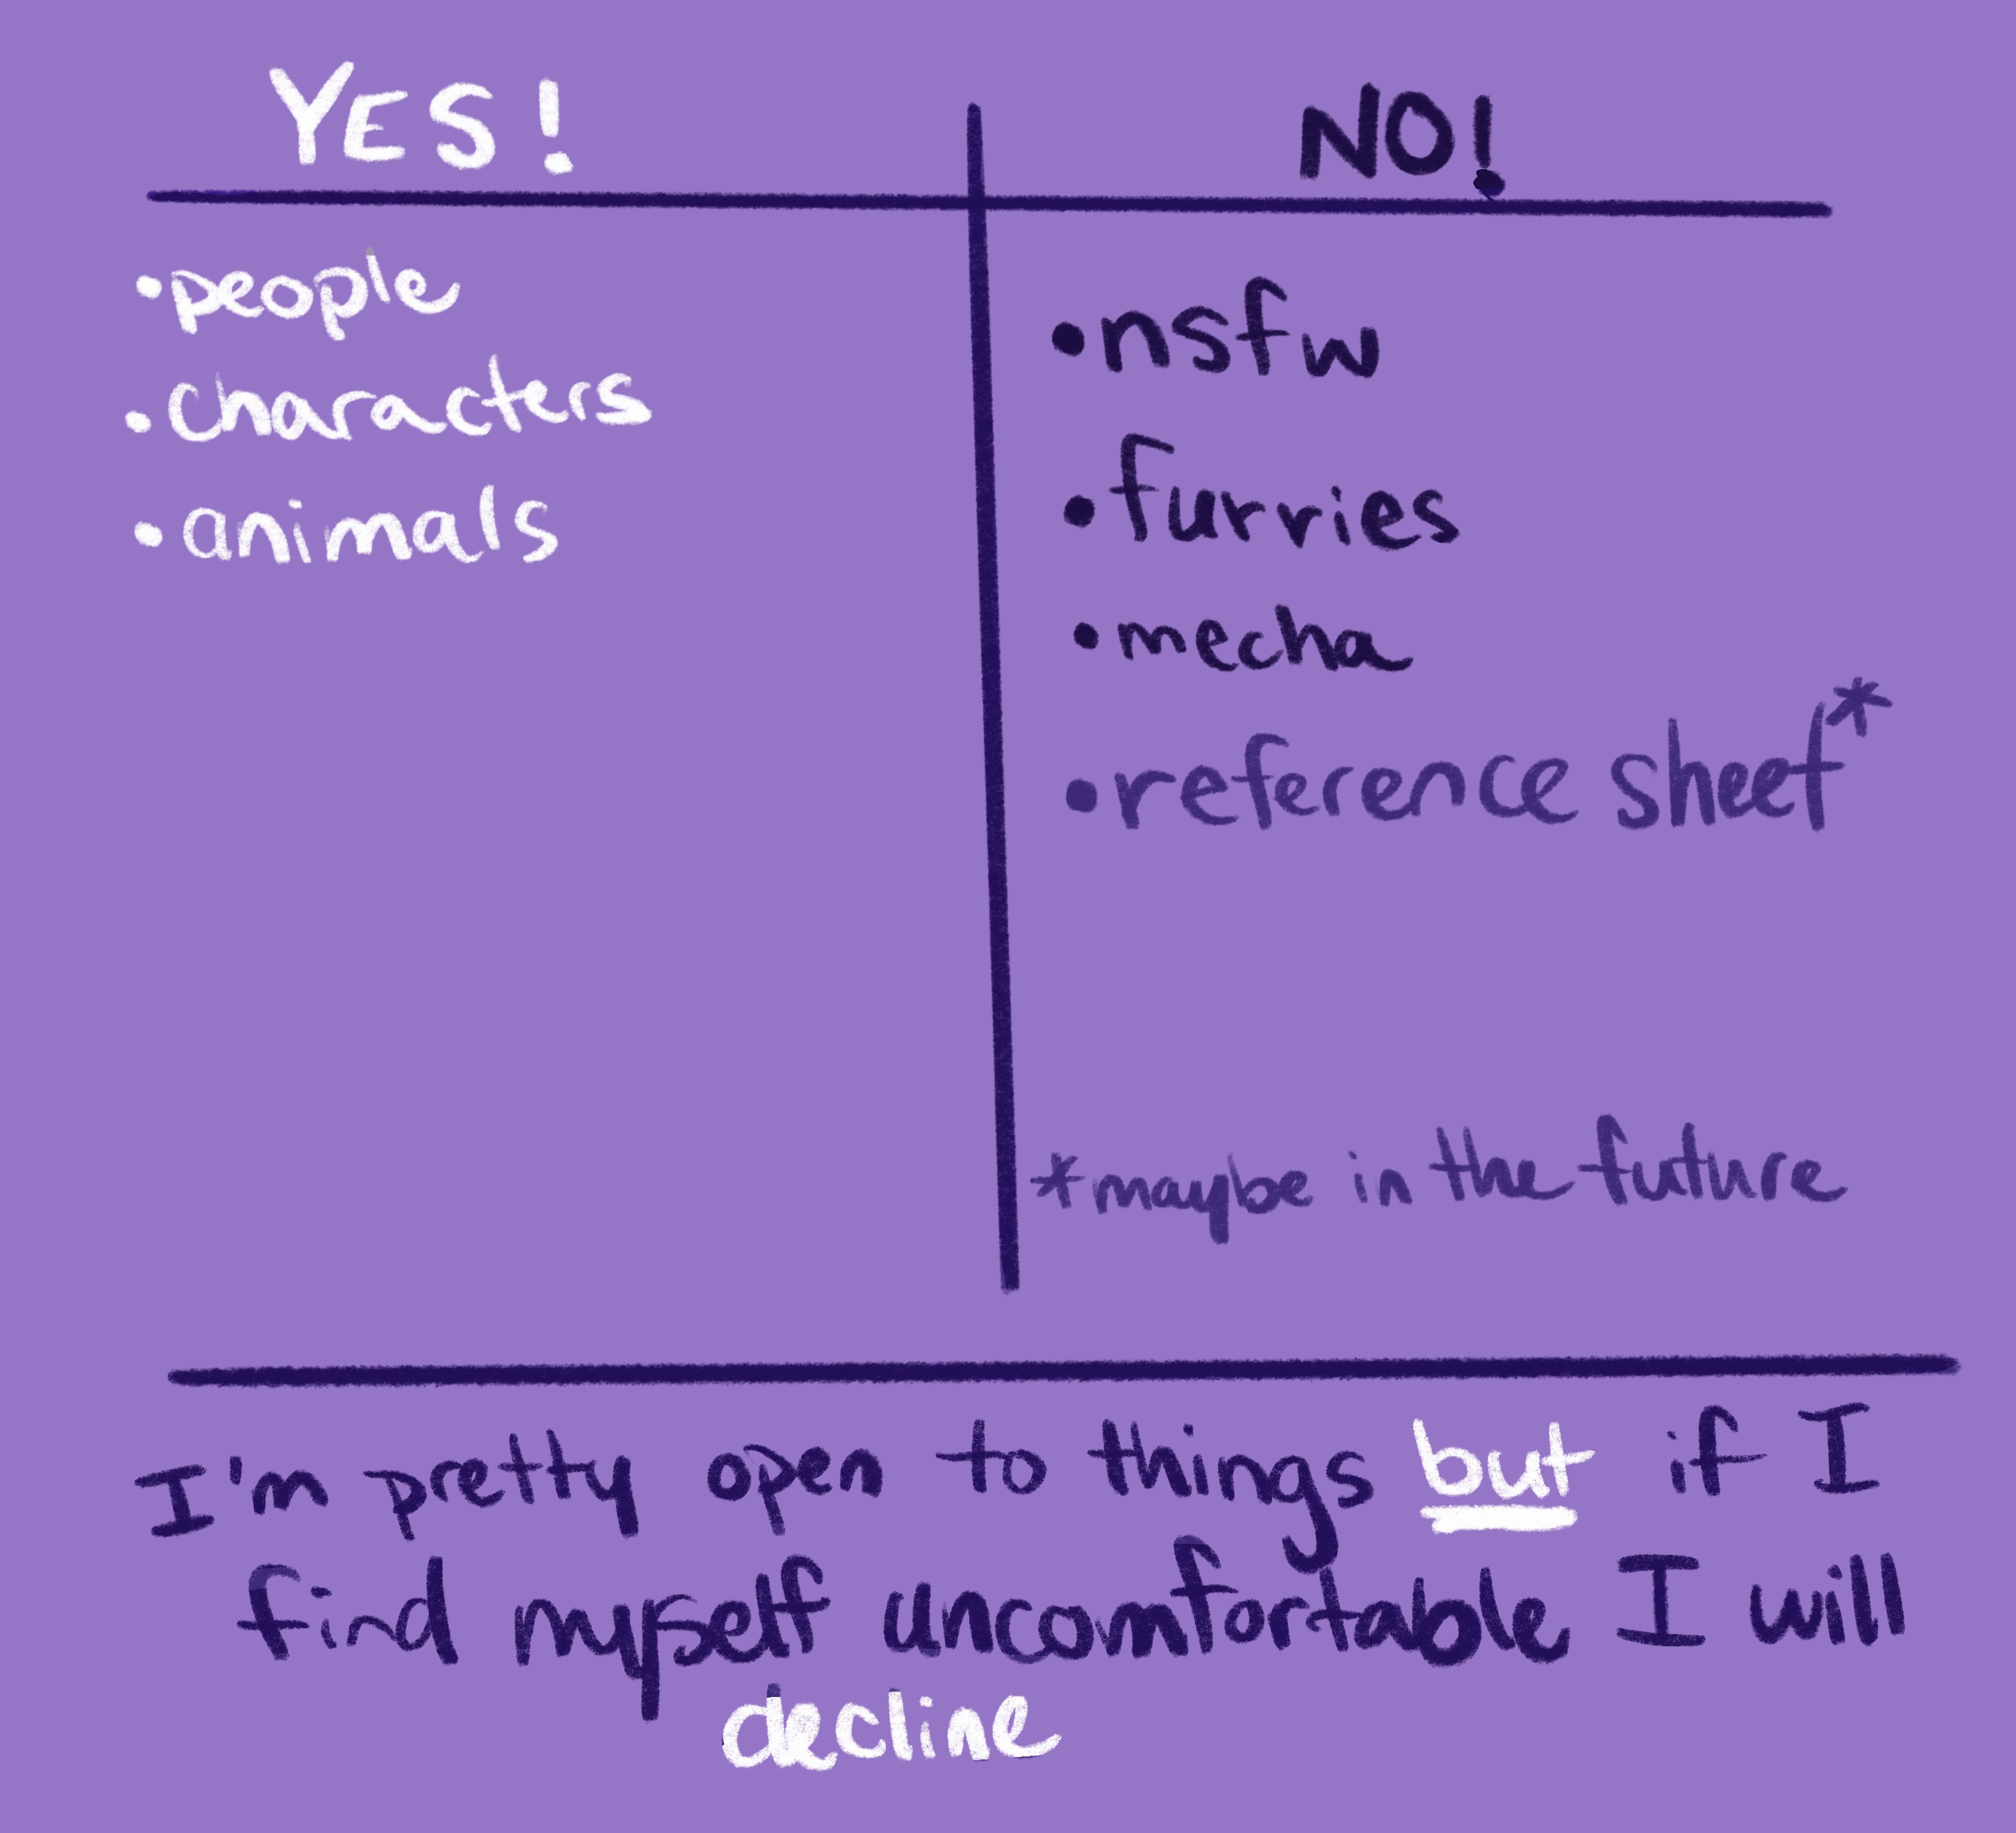 YES!
• people
• characters
• animals
NO!
• nsfw
• furries
• mecha
• reference sheet*
*maybe in the future
I'm pretty open to things but if I
find myself uncomfortable I will
decline